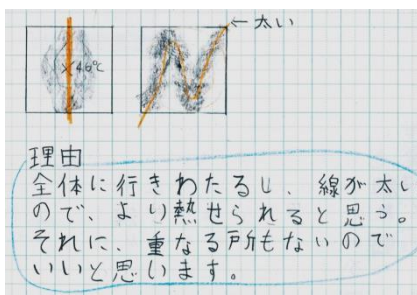 ←太い
46℃
理由
全体に行きわたるし、線が太い
ので より熱せられると思う。
それに、重なる所もないので
いいと思います。